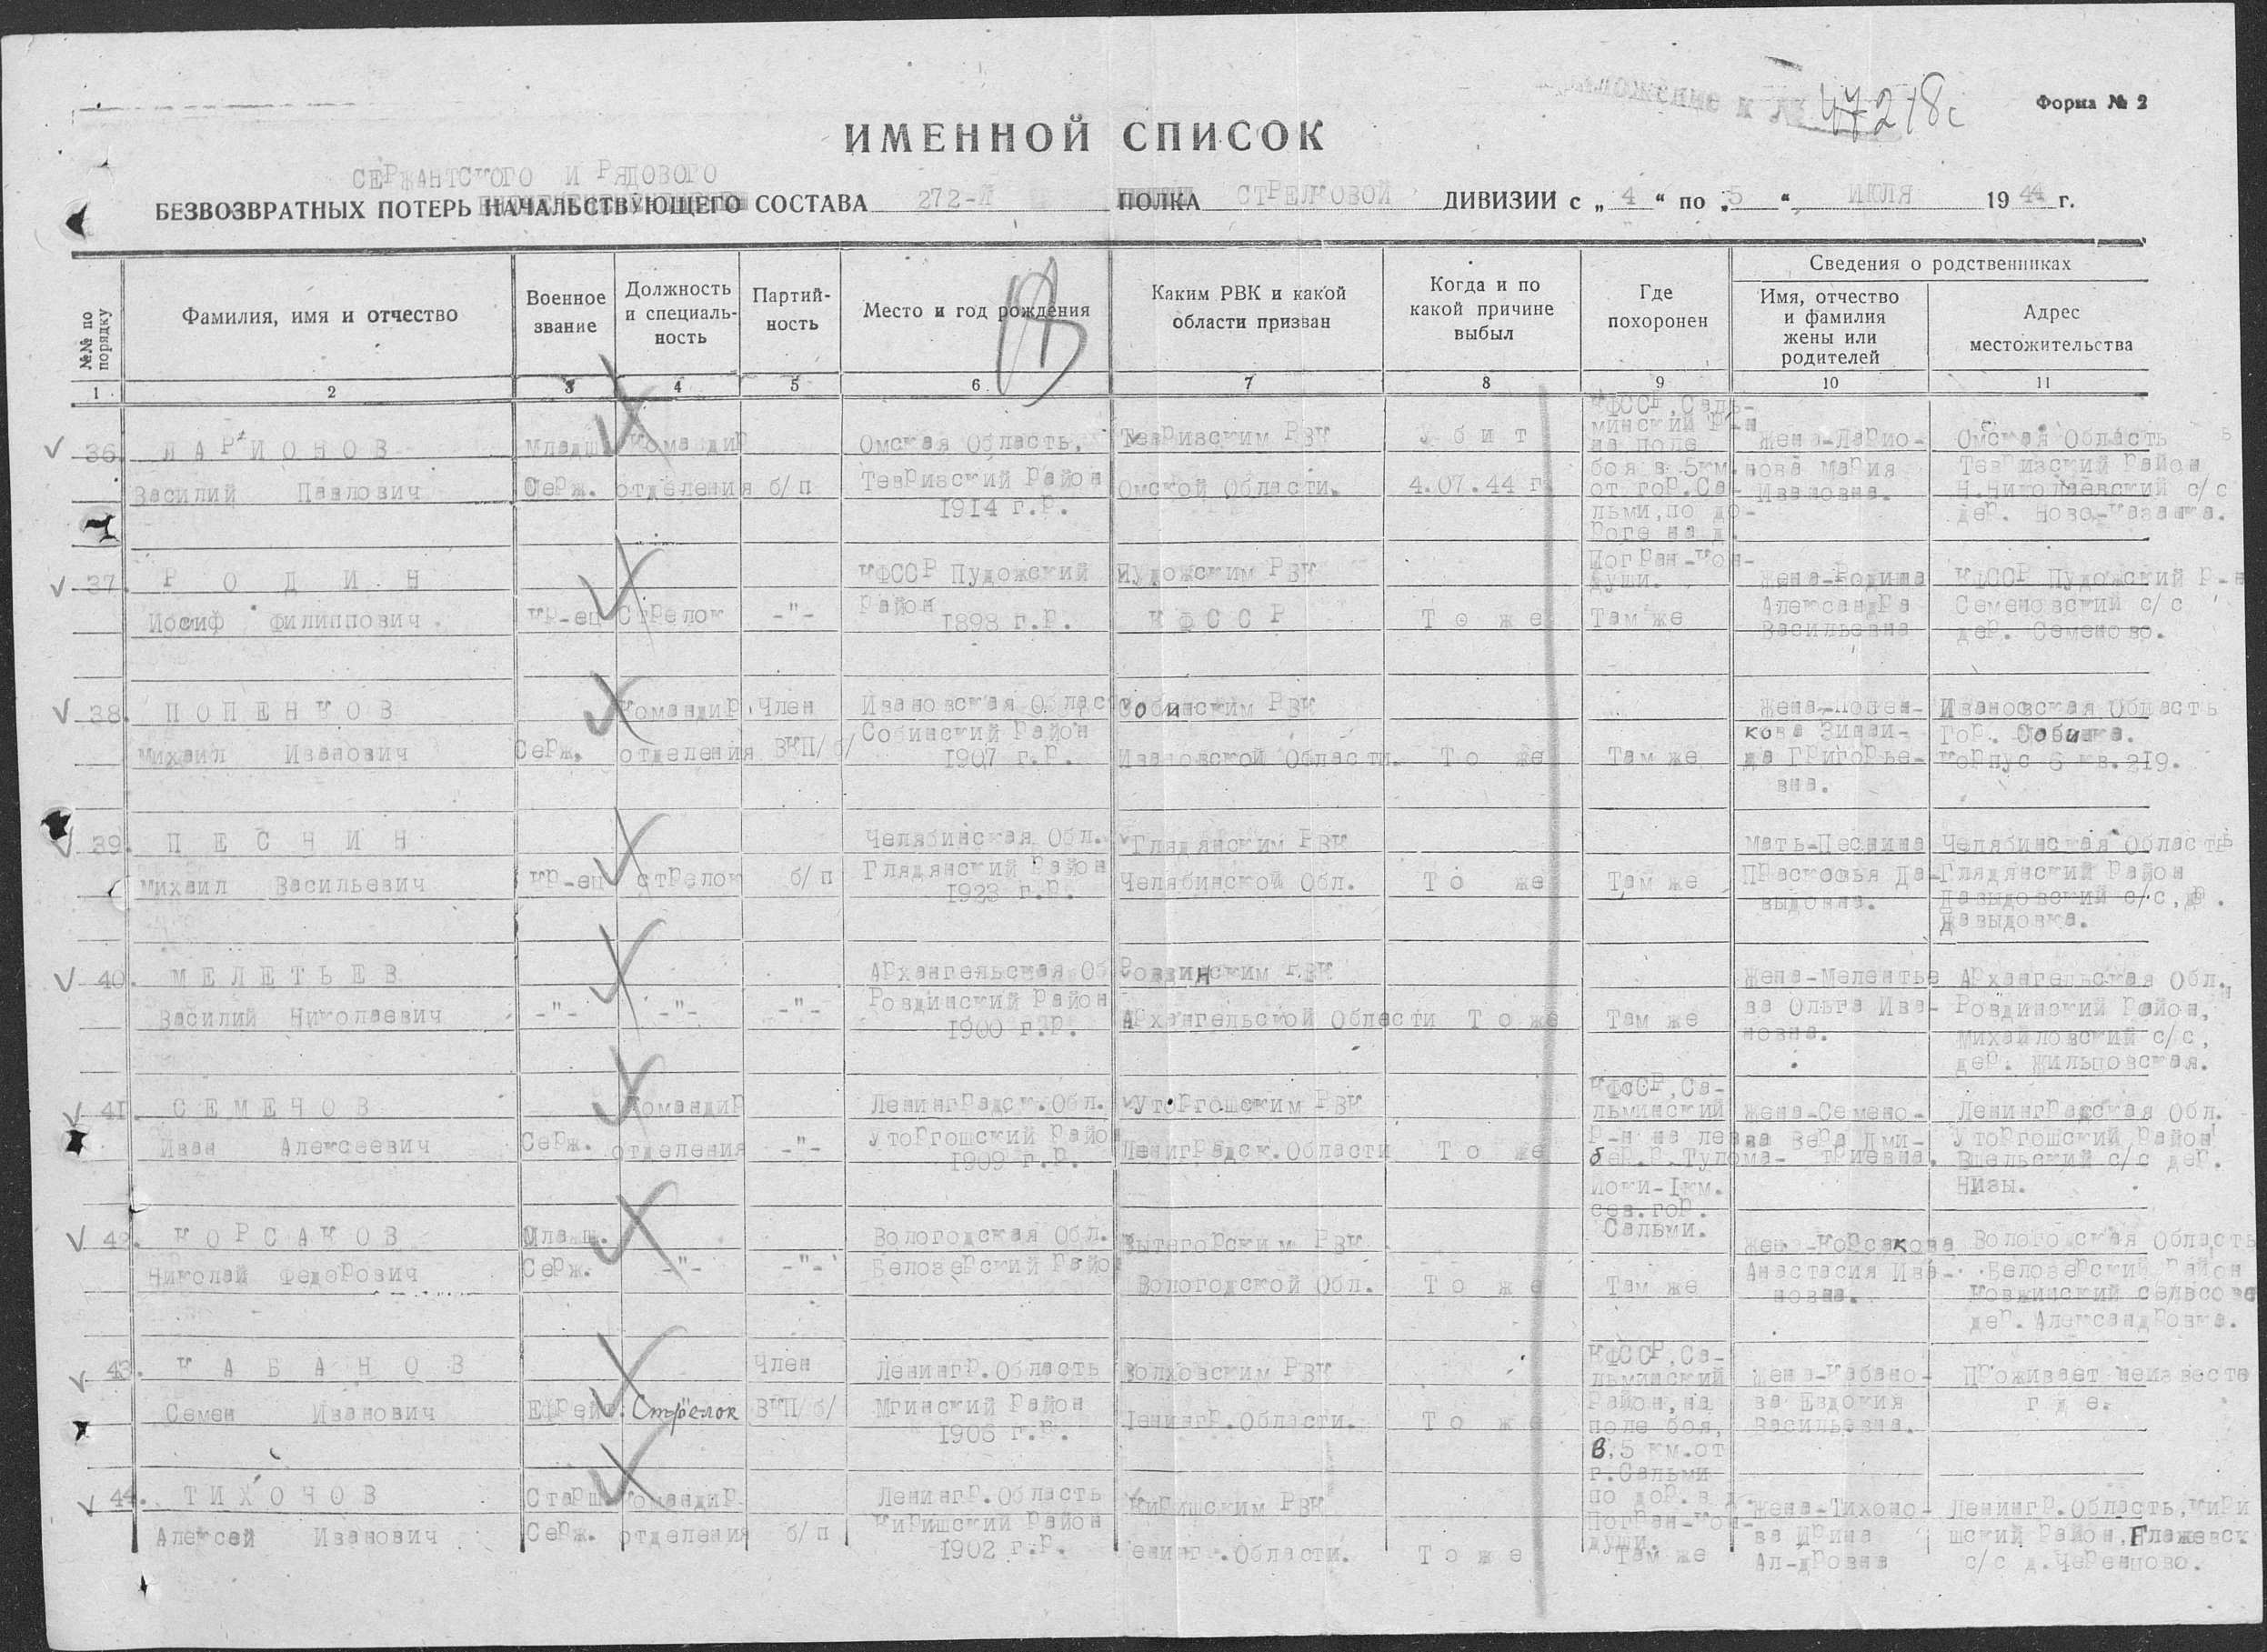 47218с
Форма № 2
ИМЕННОЙ СПИСОК
СЕРЖАНТСКОГО И РЯДОВОГО
БЕЗВОЗВРАТНЫХ ПОТЕРЬ НАЧАЛЬСТВУЮЩЕГО СОСТАВА 272-Й ПОЛКА СТРЕЛКОВОЙ ДИВИЗИИ с „ 4 “ по „ 5 “ ИЮЛЯ 1944 г.
№№ по порядку
Фамилия, имя и отчество
Военное звание
Должность и специальность
Партийность
Место и год рождения
Каким РВК и какой области призван
Когда и по какой причине выбыл
Где похоронен
Сведения о родственниках
Имя, отчество и фамилия жены или родителей
Адрес местожительства
1 2 3 4 5 6 7 8 9 10 11
36. ЛАРИОНОВ
Василий Павлович
Младш.
Серж.
Командир
отделения
б/п
Омская Область,
Тевризский Район
1914 г.р.
Тевризским РВК
Омской Области.
Убит
4.07.44 г.
КФССР, Саль-
минский Р-н
на поле
боя в 5км.
от гор.Са-
льми, по до-
роге на д.
Погран-Кон-
души.
Жена-Ларио-
нова Мария
Ивановна.
Омская Область
Тевризский Район
Н.Николаевский с/с
дер. Ново-Казанка.
37. РОДИН
Иосиф Филиппович.
Кр-ец
Стрелок
-"-
КФССР Пудожский
Район
1898 г.р.
Пудожским РВК
КФССР
То же
Там же
Жена-Родина
Александра
Васильевна
КФССР Пудожский Р-н
Семеновский с/с
дер. Семеново.
38. ПОПЕНКОВ
Михаил Иванович
Серж.
Командир
отделения
Член
ВКП/б/
Ивановская Област
Собинский Район
1907 г.р.
Собинским РВК
Ивановской Области.
То же
Там же
Жена-Попен-
кова Зинаи-
да Григорье-
вна.
Ивановская Область
Гор. Собинка.
Корпус 6 кв.219.
39. ПЕСНИН
Михаил Васильевич
Кр-ец
стрелок
б/п
Челябинская Обл.
Глядянский Район
1923 г.р.
Глядянским РВК
Челябинской Обл.
То же
Там же
Мать-Песнина
Прасковья Да-
выдовна.
Челябинская Область
Глядянский Район
Давыдовский с/с, д.
Давыдовка.
40. МЕЛЕТЬЕВ
Василий Николаевич
-"-
-"-
-"-
Архангельская Об
Ровдинский Район
1900 г.р.
Ровдинским РВК
Архангельской Области
То же
Там же
Жена-Мелентье
ва Ольга Ива-
новна.
Архангельская Обл.,
Ровдинский Район,
Михайловский с/с,
дер. Жильцовская.
41. СЕМЕНОВ
Иван Алексеевич
Серж.
Командир
отделения
-"-
Ленинградск.Обл.
Уторгошский Район
1909 г.р.
Уторгошским РВК
Ленинградск.Области
То же
КФССР, Са-
льминский
Р-н на лев
бер.р.Тулома-
йоки-1км.
сев.гор.
Сальми.
Жена-Семено-
ва Вера Дми-
триевна.
Ленинградская Обл.
Уторгошский Район
с/с дер.
Низы.
42. КОРСАКОВ
Николай Федорович
Младш.
Серж.
-"-
-"-
Вологодская Обл.
Белозерский Район
Вытегорским РВК
Вологодской Обл.
То же
Там же
Жена-Корсакова
Анастасия Ива-
новна.
Вологодская Область
Белозерский Район
Ковжинский сельсове
дер. Александровка.
43. КАБАНОВ
Семен Иванович
Ефрейт.
Стрелок
Член
ВКП/б/
Ленингр.Область
Мгинский Район
1906 г.р.
Волховским РВК
Ленингр.Области.
То же
КФССР, Са-
льминский
Район, на
поле боя,
в 5 км.от
г.Сальми
по дор. в д.
Погран-Кон-
души.
Жена-Кабано-
ва Евдокия
Васильевна.
Проживает неизвестн
где.
44. ТИХОНОВ
Алексей Иванович
Старш.
Серж.
Командир
отделения
б/п
Ленингр.Область
Киришский Район
1902 г.р.
Киришским РВК
Ленингр.Области.
То же
Там же
Жена-Тихоно-
ва Ирина
Ал-дровна
Ленингр.Область, Кири
шский Район, Глажевск.
с/с д.Черенцово.